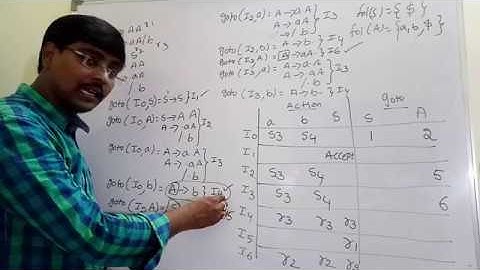 → AA r1
→ aA/b r3
goto(I0,S)= S'→S }I1
goto(I0,A)= S→A A
A→ aA }I2
/ b
goto(I0,a)= A→a A
A→ aA }I3
/ b
goto(I0,b)= A→ b } I4 ✓
goto(I2,A)=
goto(I2,a)= A→a A
A→ a A } I3
→ / b
goto(I2,b)= A→ b. }I4
goto(I3,A)= A→aA. }I6 ✓
goto(I3,a)= A→ a.A
A→ aA }I3
/ b
goto(I3,b)= A→b. } I4
fol(S)={ $ }
fol(A)={a,b,$}
Action goto
a b $ S A
I0 S3 S4 1 2
I1 Accept
I2 S3 S4 5
I3 S3 S4 6
I4 r3 r3 r3
I5 r1
I6 r2 r2 r2